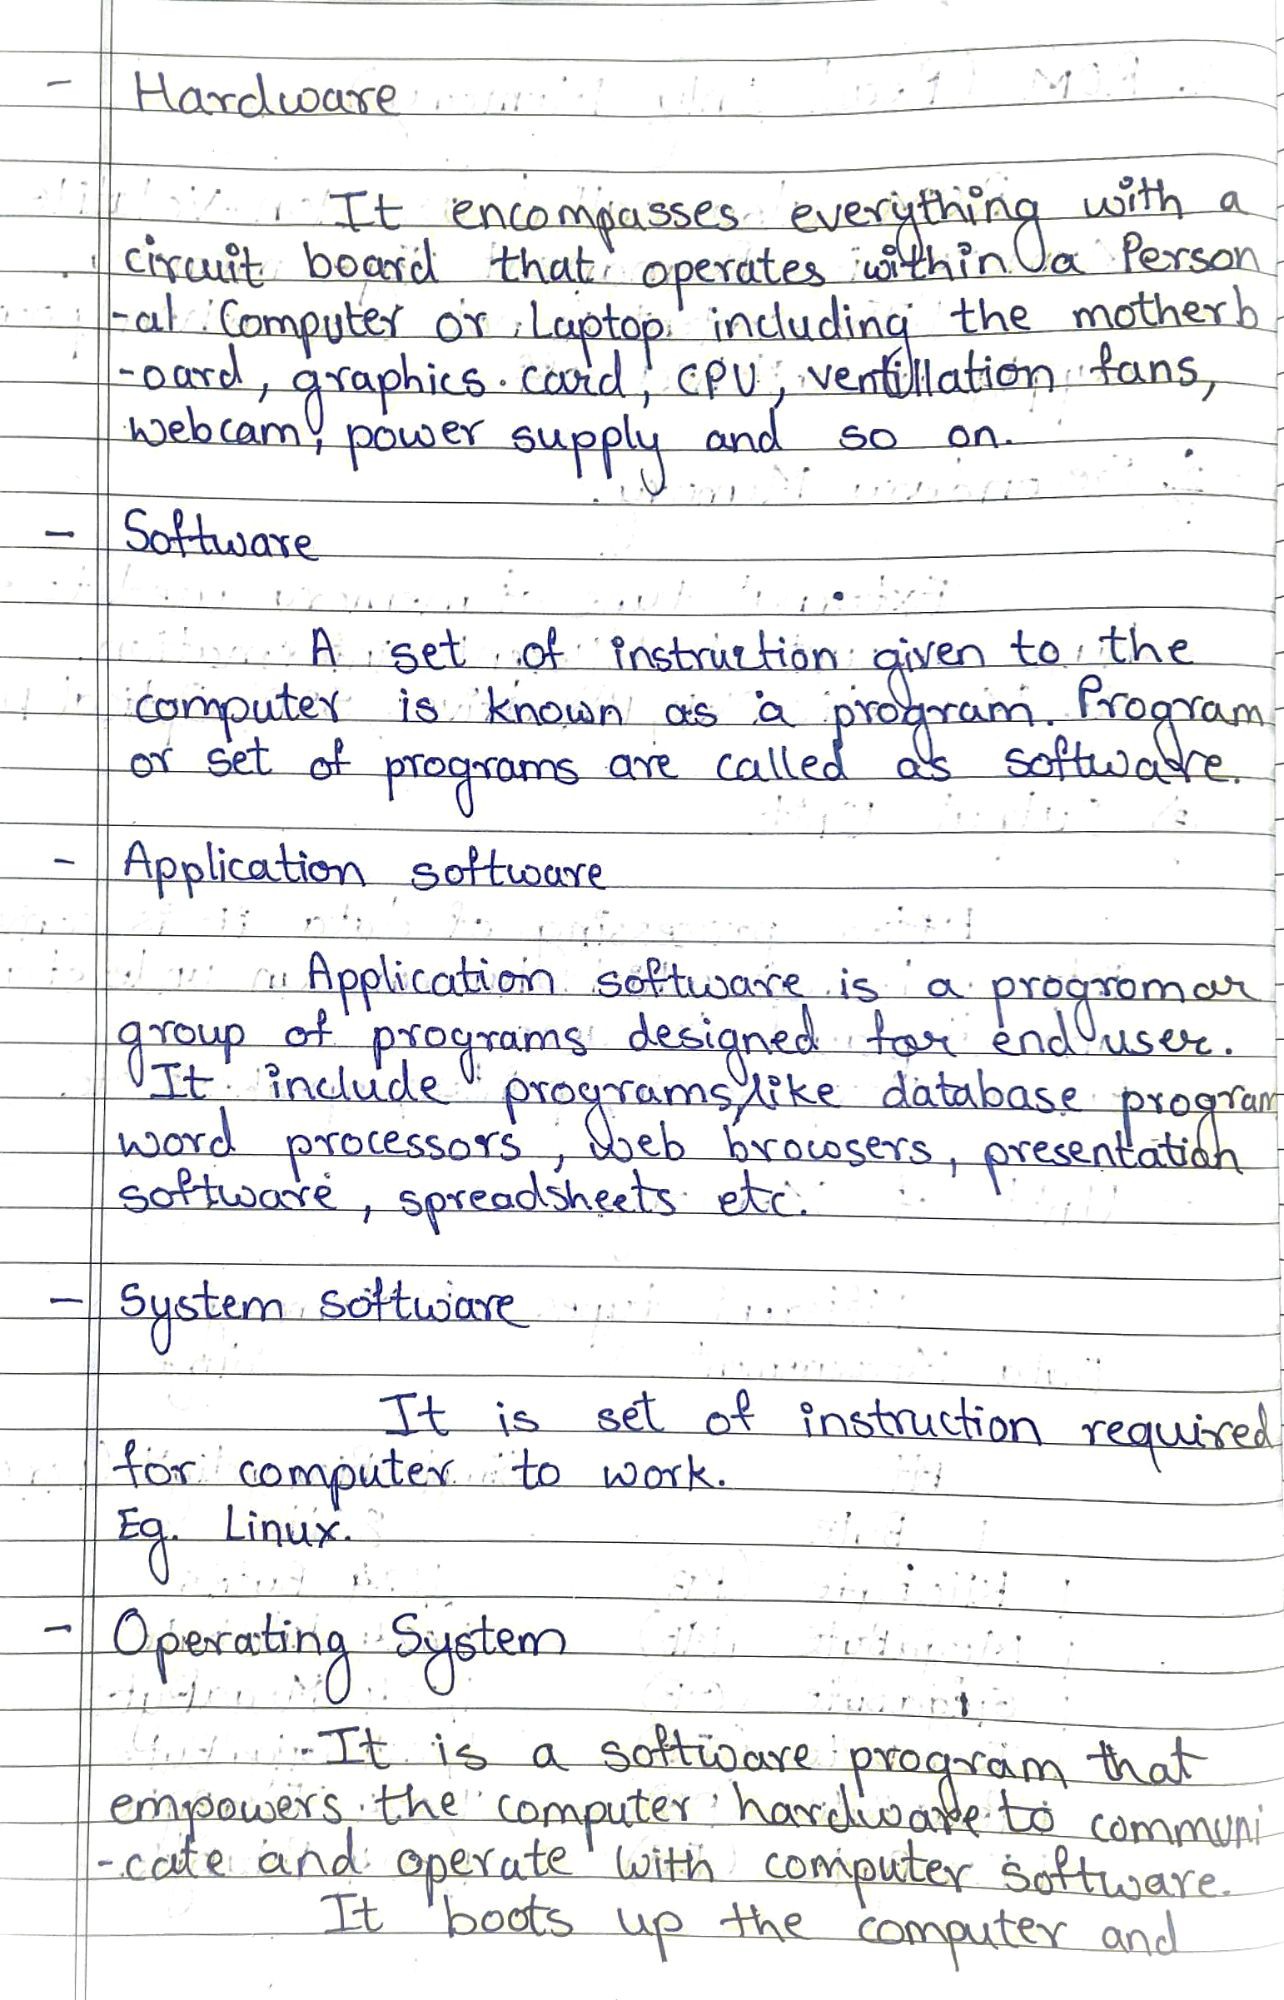 - Hardware
It encompasses everything with a
circuit board that operates within a Person
-al Computer or Laptop including the motherb
-oard, graphics card, CPU, ventillation fans,
webcam, power supply and so on.
- Software
A set of instruction given to the
computer is known as a program. Program
or set of programs are called as software.
- Application software
Application software is a program or
group of programs designed for end user.
It include programs like database program
word processors, web browsers, presentation
software, spreadsheets etc.
- System software
It is set of instruction required
for computer to work.
Eg. Linux.
- Operating System
It is a software program that
empowers the computer hardware to communi
-cate and operate with computer software.
It boots up the computer and